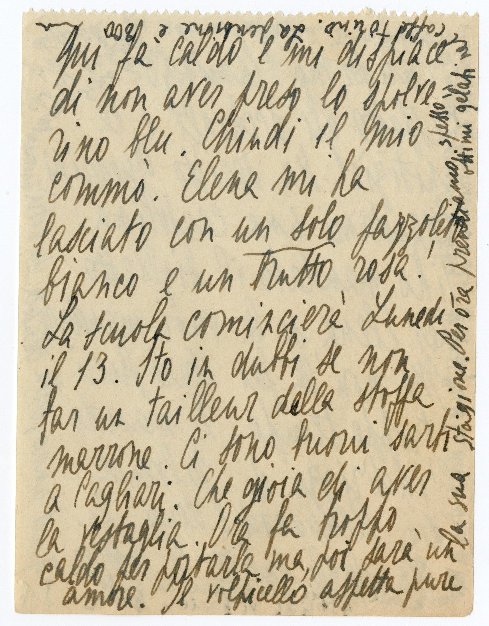 Qui fà caldo e mi dispiace
di non aver preso lo spolve
rino blu. Chiudi il mio
commò. Elena mi ha
lasciato con un solo fazzoletto
bianco e un brutto rosa!
La scuola comincierà Lunedì
il 13. Sto in dubbi se non
far un tailleur della stoffa
marrone. Ci sono buoni sarti
a Cagliari. Che gioia di aver
la vestaglia. Ora fa troppo
caldo per portarla ma poi sarà un
amore. Il volpicello aspetta pure
la sua stagione. Per ora prendiamo spesso
ottimi gelati
caffè Torino. La pensione è